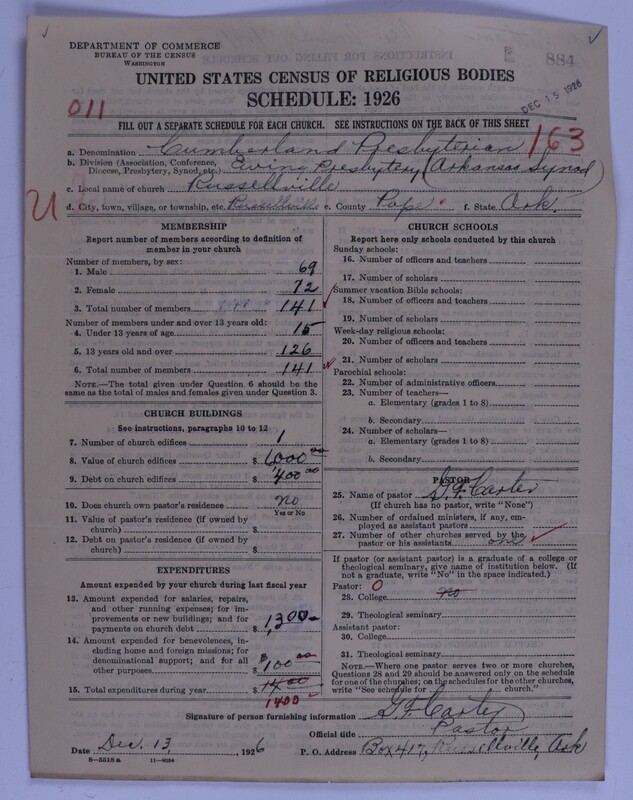 DEPARTMENT OF COMMERCE
BUREAU OF THE CENSUS
WASHINGTON
884
UNITED STATES CENSUS OF RELIGIOUS BODIES
SCHEDULE: 1926
DEC 15 1926
011
FILL OUT A SEPARATE SCHEDULE FOR EACH CHURCH. SEE INSTRUCTIONS ON THE BACK OF THIS SHEET
163
a. Denomination Cumberland Presbyterian
b. Division (Association, Conference, Diocese, Presbytery, Synod, etc.) Ewing Presbytery (Arkansas Synod
c. Local name of church Russellville
U
d. City, town, village, or township, etc. Russellville e. County Pope f. State Ark.
MEMBERSHIP
Report number of members according to definition of
member in your church
Number of members, by sex:
1. Male 69
2. Female 72
3. Total number of members 141
Number of members under and over 13 years old:
4. Under 13 years of age 15
5. 13 years old and over 126
6. Total number of members 141
NOTE.—The total given under Question 6 should be
same as the total of males and females given under Question 3.
CHURCH BUILDINGS
See instructions, paragraphs 10 to 12
7. Number of church edifices 1
8. Value of church edifices $ 6000 00
9. Debt on church edifices $ 400 00
10. Does church own pastor's residence no
Yes or No
11. Value of pastor's residence (if owned by
church) $
12. Debt on pastor's residence (if owned by
church) $
EXPENDITURES
Amount expended by your church during last fiscal year
13. Amount expended for salaries, repairs,
and other running expenses; for im-
provements or new buildings; and for
payments on church debt $ 1,300
14. Amount expended for benevolences, in-
cluding home and foreign missions; for
denominational support; and for all
other purposes $ 100 00
15. Total expenditures during year $ 1400
1400
CHURCH SCHOOLS
Report here only schools conducted by this church
Sunday schools:
16. Number of officers and teachers
17. Number of scholars
Summer vacation Bible schools:
18. Number of officers and teachers
19. Number of scholars
Week-day religious schools:
20. Number of officers and teachers
21. Number of scholars
Parochial schools:
22. Number of administrative officers
23. Number of teachers—
a. Elementary (grades 1 to 8)
b. Secondary
24. Number of scholars—
a. Elementary (grades 1 to 8)
b. Secondary
PASTOR
25. Name of pastor G. F. Carter
(If church has no pastor, write "None")
26. Number of ordained ministers, if any, em-
ployed as assistant pastors
27. Number of other churches served by the
pastor or his assistants one
If pastor (or assistant pastor) is a graduate of a college or
theological seminary, give name of institution below. (If
not a graduate, write "No" in the space indicated.)
Pastor: 0
28. College no
29. Theological seminary
Assistant pastor:
30. College
31. Theological seminary
NOTE.—Where one pastor serves two or more churches,
Questions 28 and 29 should be answered only on the schedule
for one of the churches; on the schedules for the other churches,
write "See schedule for church."
Signature of person furnishing information G. F. Carter
Official title Pastor
Date Dec. 13, 1926 P. O. Address Box 417, Russellville, Ark
8—5518 a 11—9034